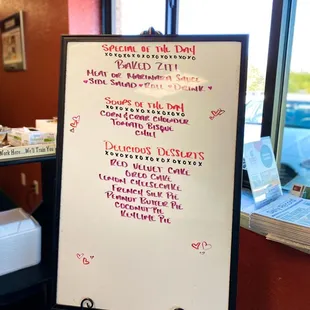 Special of the Day
xoxoxoxoxoxoxoxo
Baked Ziti
Meat or Marinara Sauce
Side Salad Roll Drink
Soups of the Day
Corn & Crab Chowder
Tomato Bisque
Chili
Delicious Desserts
xoxoxoxoxoxoxoxo
Red Velvet Cake
Oreo Cake
Lemon Cheesecake
French Silk Pie
Peanut Butter Pie
Coconut Pie
Keylime Pie
Work Here...We'll Train